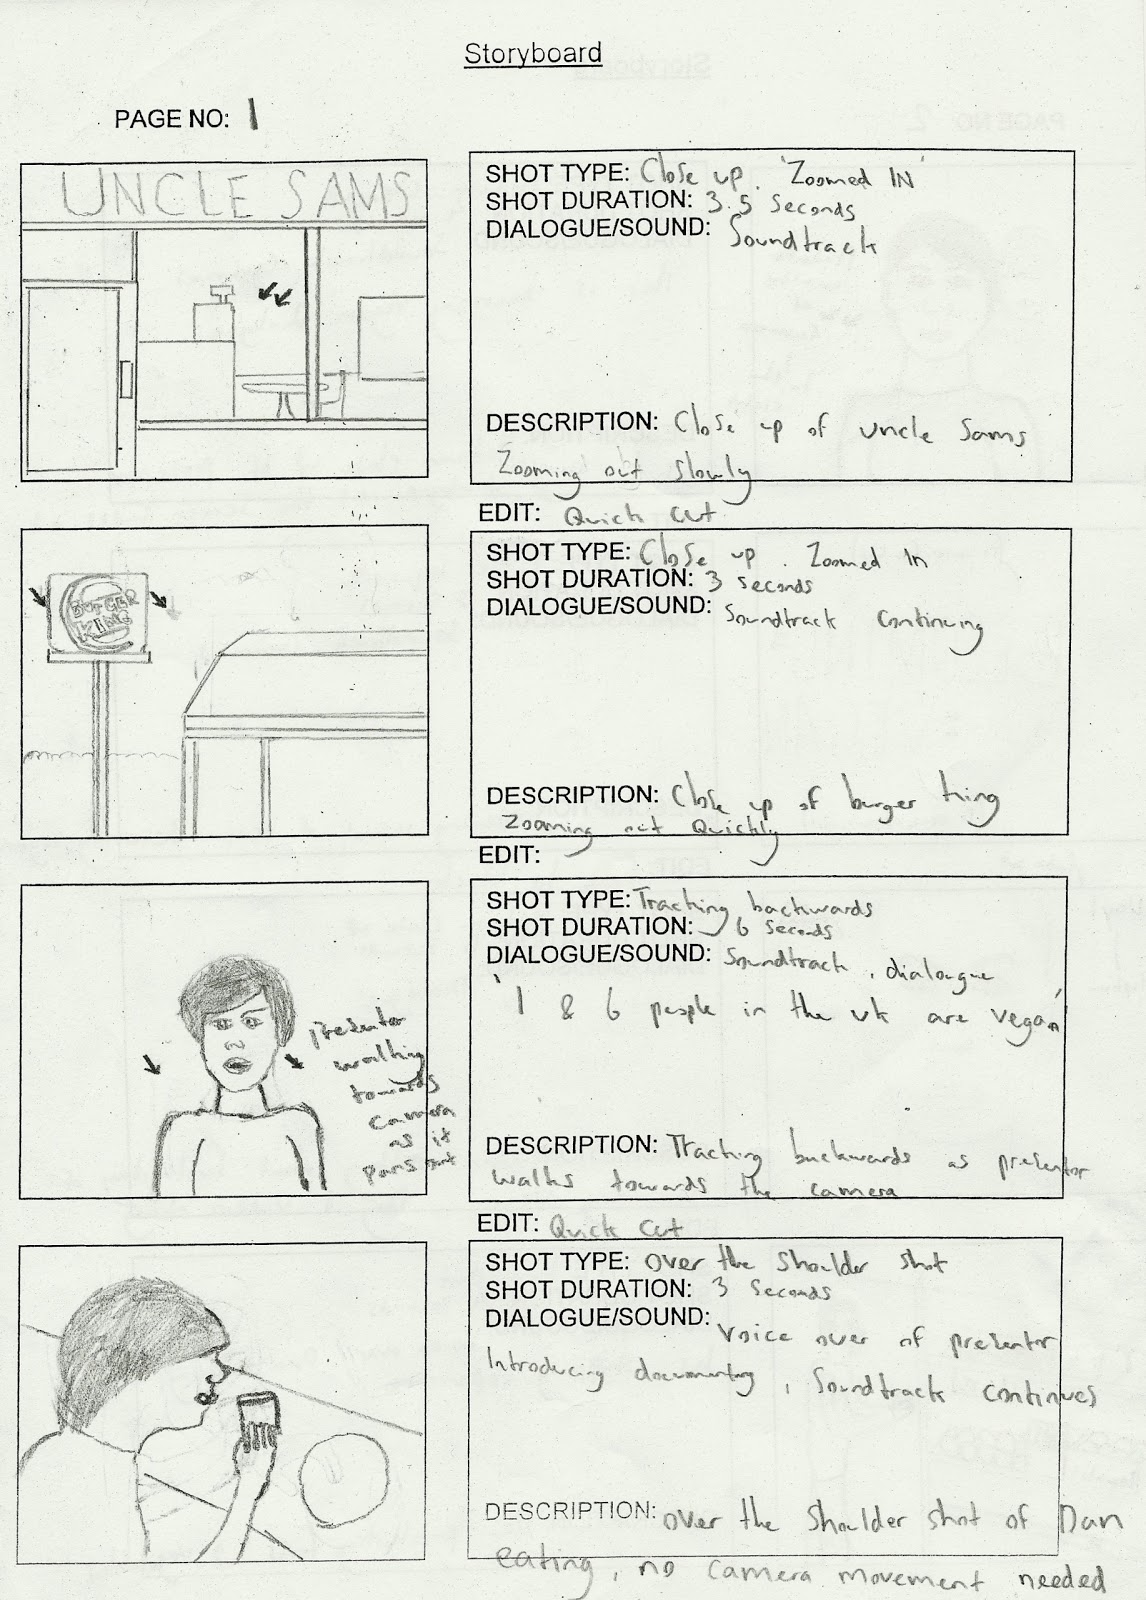 Storyboard
PAGE NO: 1
UNCLE SAMS
SHOT TYPE: Close up. 'Zoomed IN'
SHOT DURATION: 3.5 Seconds
DIALOGUE/SOUND: Soundtrack
DESCRIPTION: Close up of uncle Sams
Zooming out slowly
EDIT: Quick cut
BURGER
KING
SHOT TYPE: Close up. Zoomed In
SHOT DURATION: 3 seconds
DIALOGUE/SOUND: Soundtrack continuing
DESCRIPTION: Close up of burger king
Zooming out Quickly
EDIT:
presentor
walking
towards
camera
as it
pans out
SHOT TYPE: Tracking backwards
SHOT DURATION: 6 seconds
DIALOGUE/SOUND: Soundtrack, dialogue
'1 & 6 people in the uk are vegan'
DESCRIPTION: Tracking backwards as presentor
walks towards the camera
EDIT: Quick cut
SHOT TYPE: over the shoulder shot
SHOT DURATION: 3 Seconds
DIALOGUE/SOUND: Voice over of presentor
Introducing documentry, Soundtrack continues
DESCRIPTION: over the shoulder shot of Dan
eating, no camera movement needed